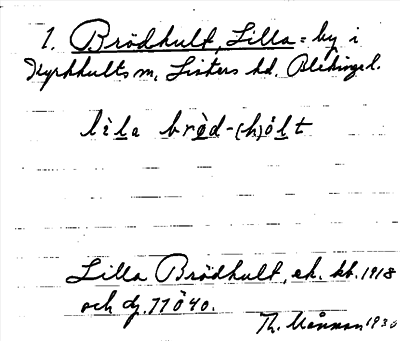 1. Brödhult, Lilla = by i
Kyrkhults sn, Listers hd. Blekinge l.
lìla brød-(h)ólt
Lilla Brödhult, ek. kb. 1918
och dj. 11Ö40.
Th. 1930